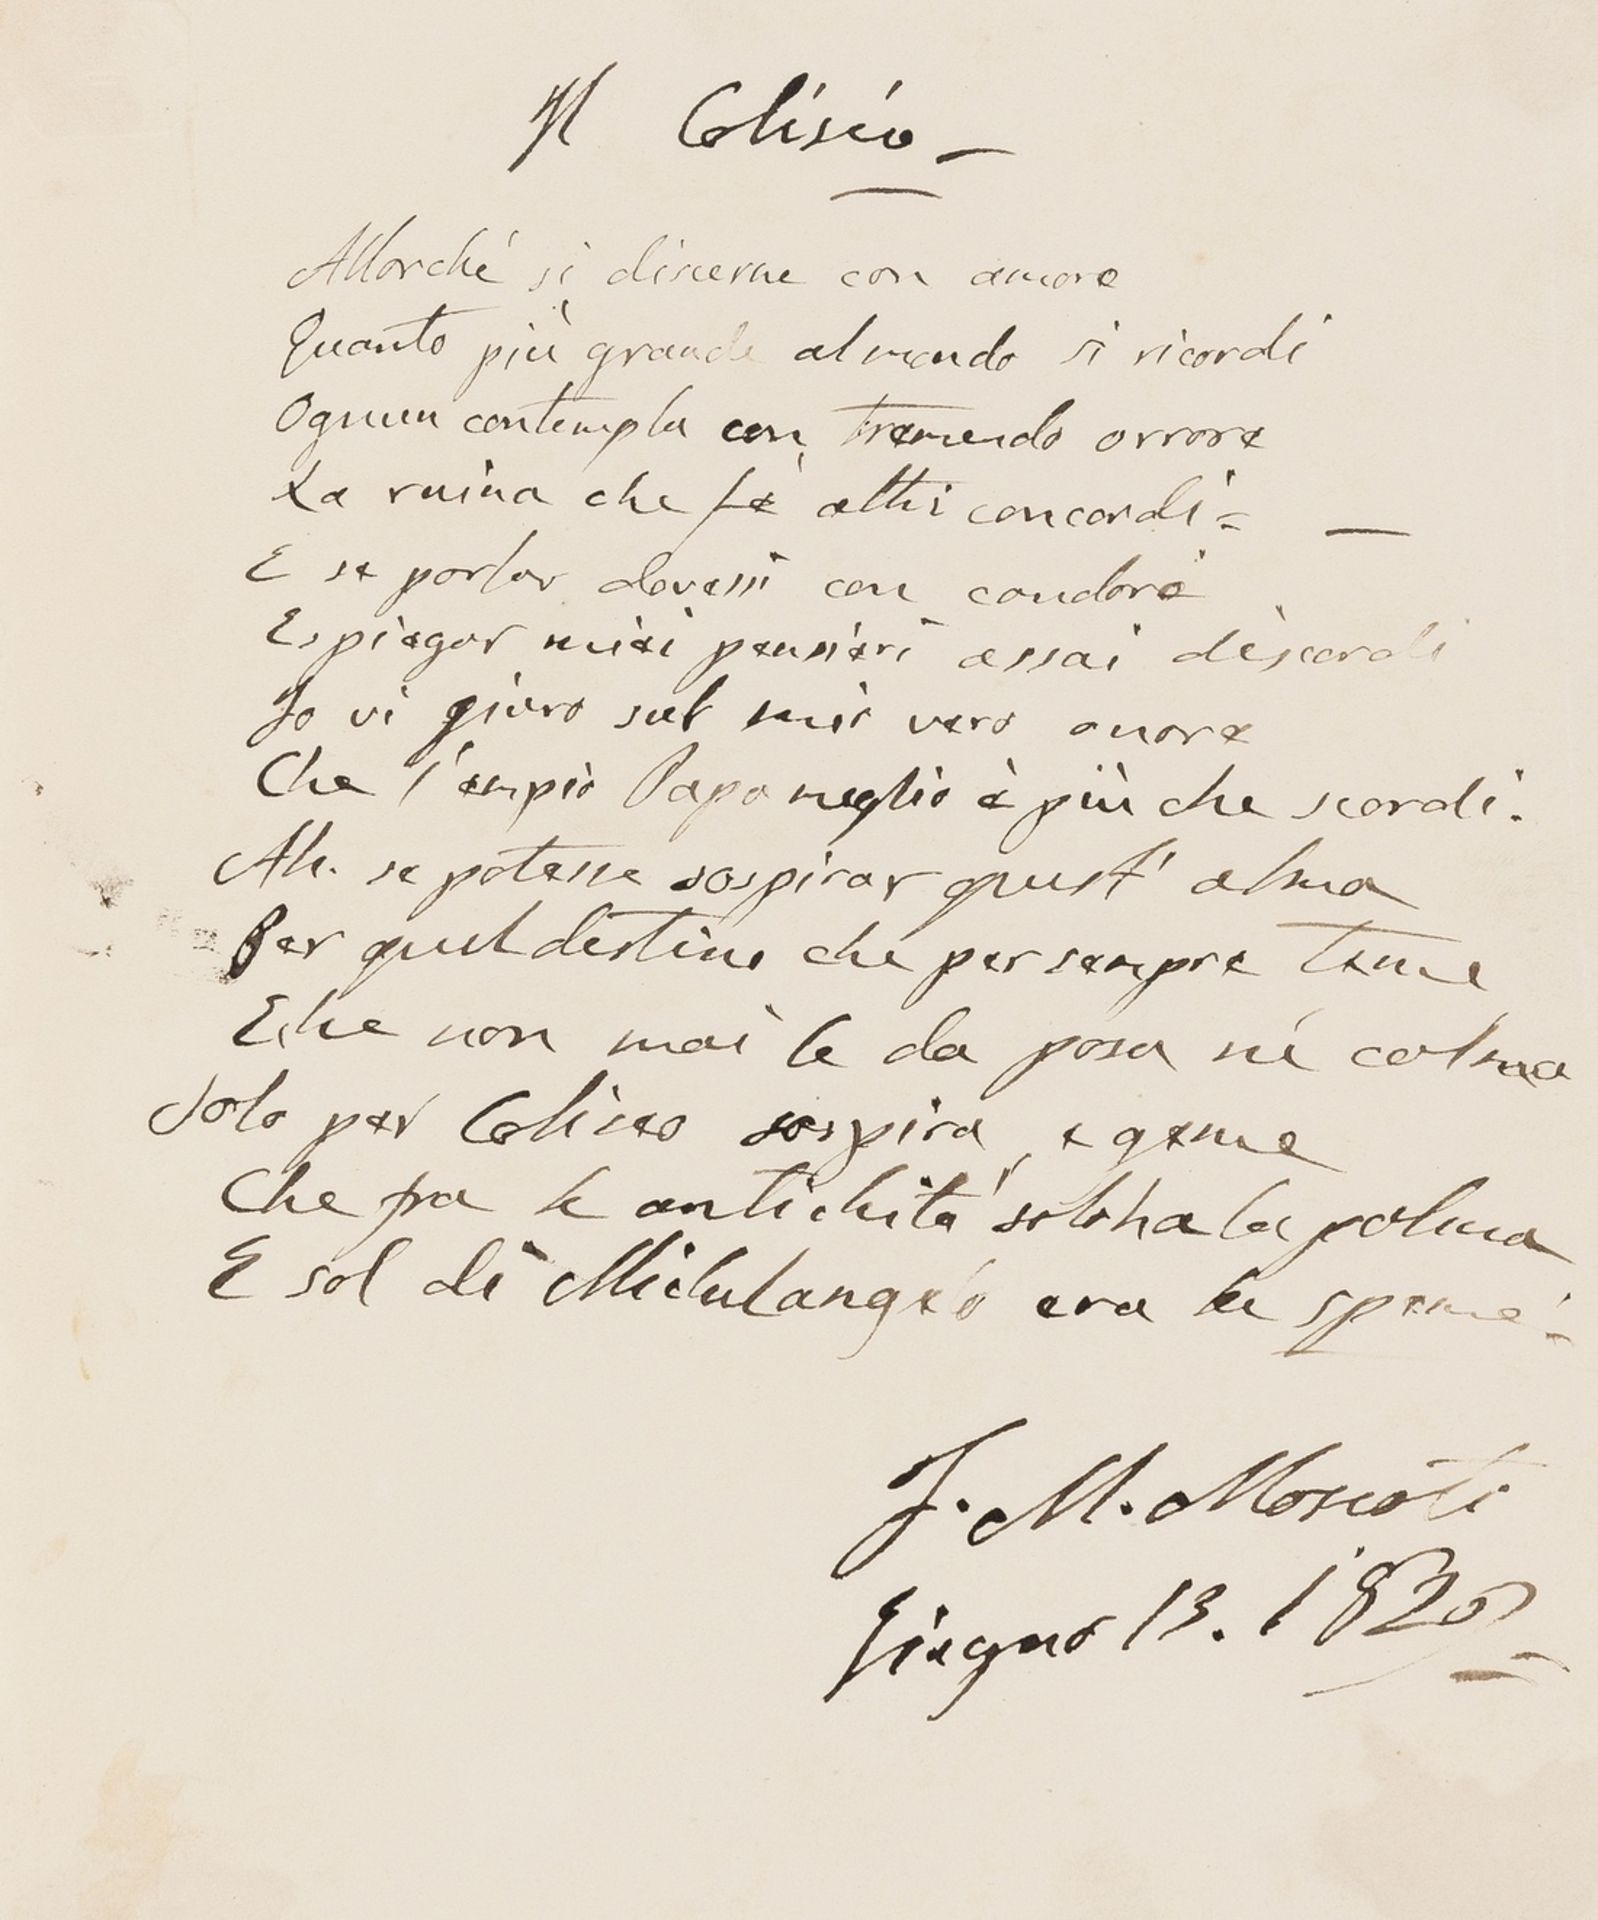 Il Coliseo –
Allorché si discerne con amore
Quanto più grande al mondo si ricordi
Ognun contempla con tremendo orrore
La ruina che fè altri concordi = —
E se parlar dovessi con candore
E spiegar miei pensieri assai discordi
Io vi giuro sul mio vero onore
Che l'empio Papa meglio è più che scordi.
Ah. se potesse sospirar quest' alma
Per quel destino che per sempre teme
E che non mai le da posa né calma
Solo per Coliseo sospira, e geme
Che fra le antichità sol' ha la palma
E sol di Michelangelo era la speme =
J. M. Moscoti
Giugno 13. 1820